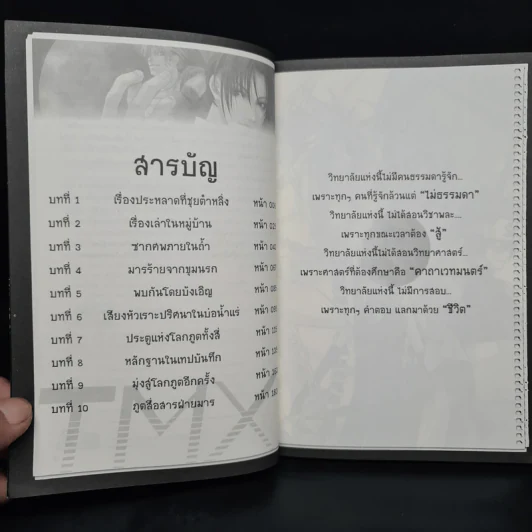 สารบัญ
บทที่ 1 เรื่องประหลาดที่ซุยต๋าหลิ่ง หน้า
บทที่ 2 เรื่องเล่าในหมู่บ้าน หน้า
บทที่ 3 ซากศพภายในถ้ำ หน้า
บทที่ 4 มารร้ายจากขุมนรก หน้า
บทที่ 5 พบกันโดยบังเอิญ หน้า
บทที่ 6 เสียงหัวเราะปริศนาในบ่อน้ำแร่ หน้า
บทที่ 7 ประตูแห่งโลกภูตทั้งสี่ หน้า
บทที่ 8 หลักฐานในเทปบันทึก หน้า
บทที่ 9 มุ่งสู่โลกภูตอีกครั้ง หน้า
บทที่ 10 ภูตสื่อสารฝ่ายมาร หน้า
TMX
วิทยาลัยแห่งนี้ไม่มีคนธรรมดารู้จัก...
เพราะทุกๆ คนที่รู้จักล้วนแต่ "ไม่ธรรมดา"
วิทยาลัยแห่งนี้ ไม่ได้สอนวิชาพละ...
เพราะทุกขณะเวลาต้อง "สู้"
วิทยาลัยแห่งนี้ไม่ได้สอนวิทยาศาสตร์...
เพราะศาสตร์ที่ต้องศึกษาคือ "คาถาเวทมนตร์"
วิทยาลัยแห่งนี้ ไม่มีการสอบ...
เพราะทุกๆ คำตอบ แลกมาด้วย "ชีวิต"